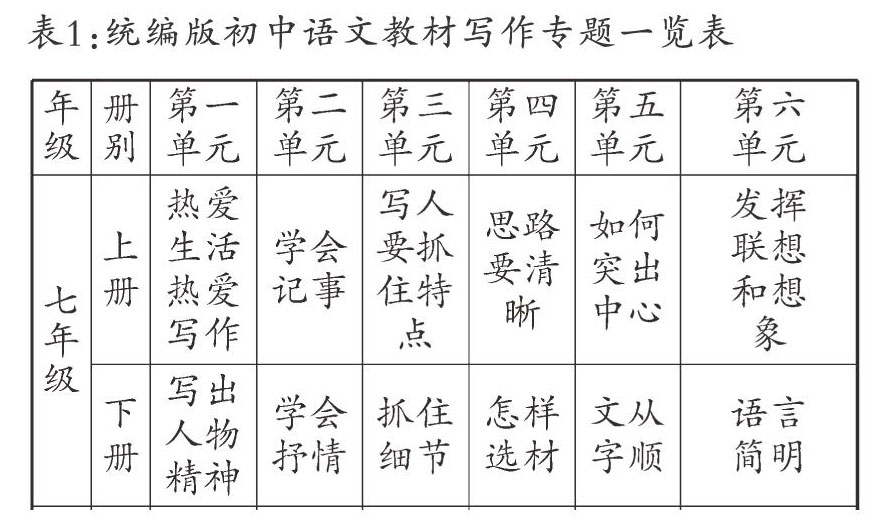 表1:统编版初中语文教材写作专题一览表
年级 册别 第一单元 第二单元 第三单元 第四单元 第五单元 第六单元
七年级 上册 热爱生活热爱写作 学会记事 写人要抓住特点 思路要清晰 如何突出中心 发挥联想和想象
下册 写出人物精神 学会抒情 抓住细节 怎样选材 文从字顺 语言简明